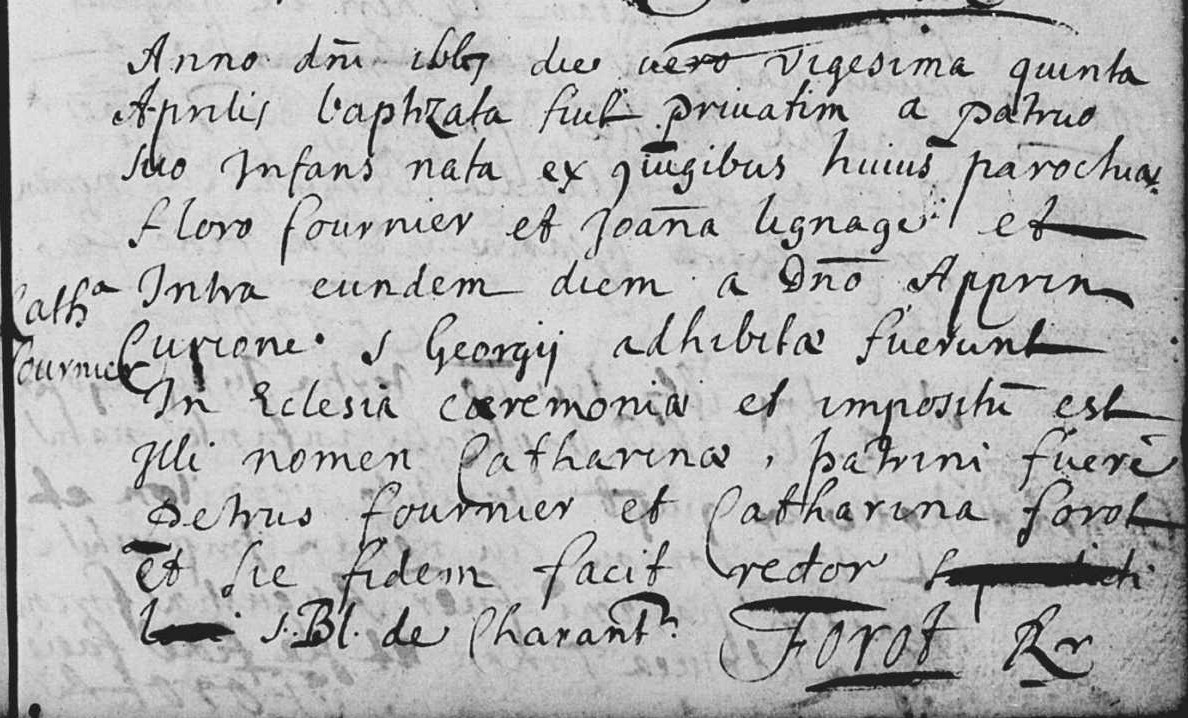 Anno dñi 1667 die vero vigesima quinta
Aprilis baptizata fuit privatim a patruo
suo Infans nata ex 9iugibus huius parochiae
floro fournier et Joaña lignage et
Intra eundem diem a Dño Apprin
Cathᵃ
Curione s Georgij adhibitae fuerunt
fournier
In Eclesia caeremoniae et impositū est
Illi nomen Catharinae, patrini fuerē
Petrus fournier et Catharina forot
et sic fidem facit rector
s. Bl. de Charantʰ. Forot Rr